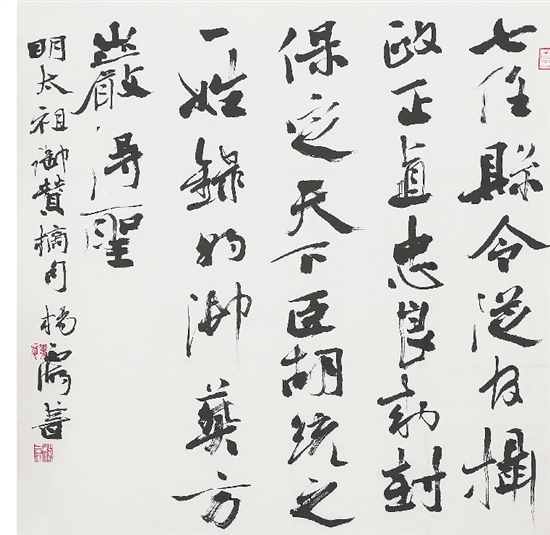 七任縣令攝
政正直忠良勅封
保定天下臣胡統之
一姓錄御方
嚴得聖
明太祖御贊摘句 楊書